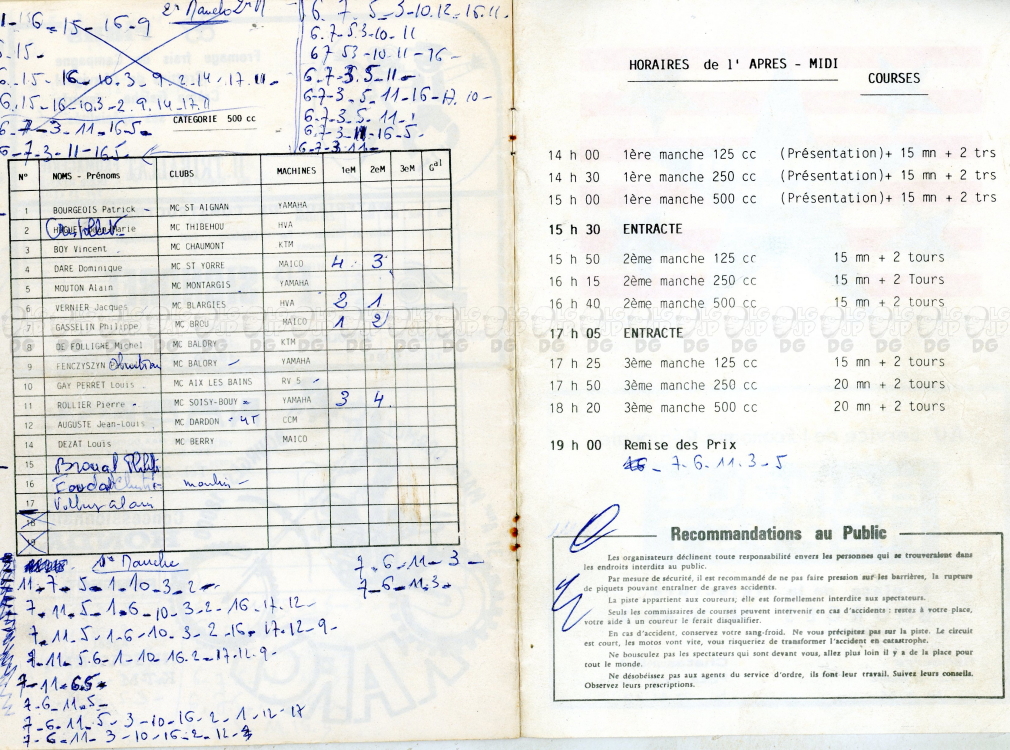 2e Manche
1-16-15-16-9
6.15-
6.15-16-10.3-9-2.14-17.11-
6.15-16-10.3-2.9.14.17.11
6-7-3-11-16.5-
6-7-3-11-16.5
6.7.5-3-10.12-16.11-
6.7-5.3-10-11
6 7 5 3-10-11-16-
6-7-3.5-11-
6-7-3.5-11-16-17.10-
6-7-3.5-11-1
6-7-3-11-16-5-
6-7-3-11-
CATEGORIE 500 cc
N° NOMS - Prénoms CLUBS MACHINES 1eM 2eM 3eM Gal
1 BOURGEOIS Patrick - MC ST AIGNAN YAMAHA
2 MC THIBEHOU HVA
3 BOY Vincent MC CHAUMONT KTM
4 DARE Dominique MC ST YORRE MAICO 4 3
5 MOUTON Alain MC MONTARGIS YAMAHA
6 VERNIER Jacques MC BLARGIES HVA 2 1
7 GASSELIN Philippe MC BROU MAICO 1 2
8 DE FOLLIGNE Michel MC BALORY KTM
9 FENCZYSZYN Christian MC BALORY - YAMAHA
10 GAY PERRET Louis MC AIX LES BAINS RV 5
11 ROLLIER Pierre - MC SOISY-BOUY YAMAHA 3 4
12 AUGUSTE Jean-Louis MC DARDON CCM
14 DEZAT Louis MC BERRY MAICO
15
16
17
18
19
1re Manche
11-7-5-1-10.3-2-
7-11.5-1-6-10-3-2-16-17.12-
7.11-5-1-6-10-3-2-16-17.12-9-
7-11-5.6-1-10-16.2-17.12.9-
7-11-6.5-
7-6-11.5-
7-6-11-5-3-10-16-2-1-12-17
7-6-11-3-10-16-2-12-9
7-6-11-3-
7-6-11.3-
HORAIRES de l' APRES - MIDI
COURSES
14 h 00 1ère manche 125 cc (Présentation)+ 15 mn + 2 trs
14 h 30 1ère manche 250 cc (Présentation)+ 15 mn + 2 trs
15 h 00 1ère manche 500 cc (Présentation)+ 15 mn + 2 trs
15 h 30 ENTRACTE
15 h 50 2ème manche 125 cc 15 mn + 2 tours
16 h 15 2ème manche 250 cc 15 mn + 2 Tours
16 h 40 2ème manche 500 cc 15 mn + 2 tours
17 h 05 ENTRACTE
17 h 25 3ème manche 125 cc 15 mn + 2 tours
17 h 50 3ème manche 250 cc 20 mn + 2 tours
18 h 20 3ème manche 500 cc 20 mn + 2 tours
19 h 00 Remise des Prix
7-6.11.3-5
Recommandations au Public
Les organisateurs déclinent toute responsabilité envers les personnes qui se trouveraient dans
les endroits interdits au public.
Par mesure de sécurité, il est recommandé de ne pas faire pression sur les barrières, la rupture
de piquets pouvant entraîner de graves accidents.
La piste appartient aux coureurs; elle est formellement interdite aux spectateurs.
Seuls les commissaires de courses peuvent intervenir en cas d'accidents : restez à votre place,
votre aide à un coureur le ferait disqualifier.
En cas d'accident, conservez votre sang-froid. Ne vous précipitez pas sur la piste. Le circuit
est court, les motos vont vite, vous risqueriez de transformer l'accident en catastrophe.
Ne bousculez pas les spectateurs qui sont devant vous, allez plus loin il y a de la place pour
tout le monde.
Ne désobéissez pas aux agents du service d'ordre, ils font leur travail. Suivez leurs conseils.
Observez leurs prescriptions.